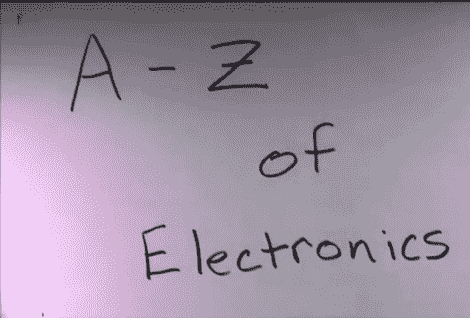 A - Z
of
Electronics